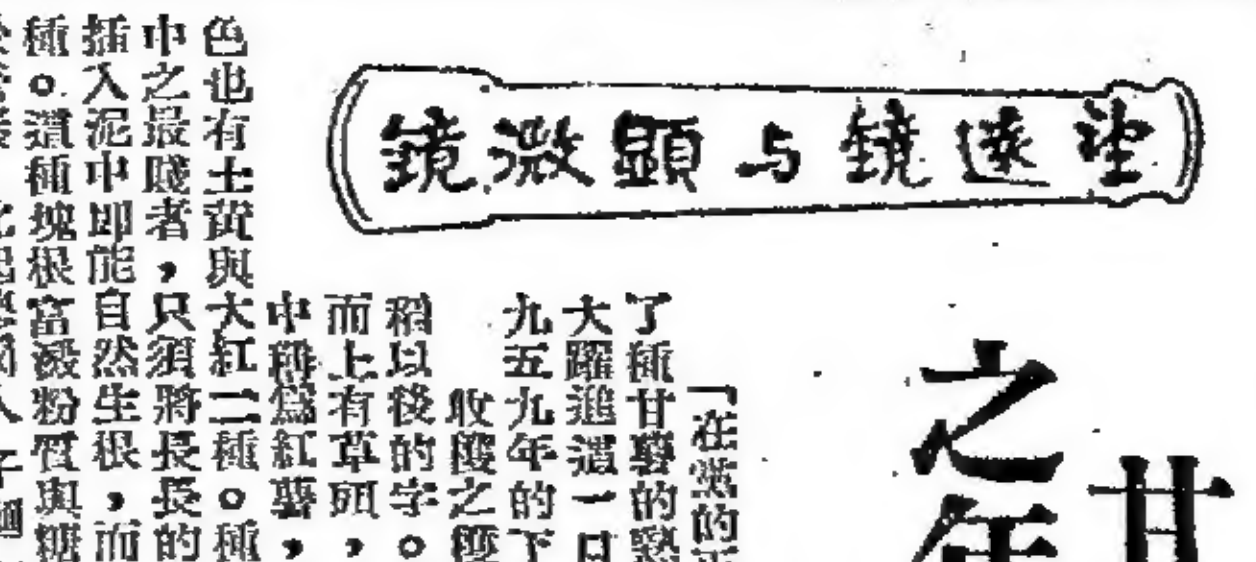 望遠鏡与顯微鏡
甘
之年
「在黨的
了種甘薯的
大躍進這一
九五九年的下
收穫之
稻以後的字。
而上有草頭，
中稱爲紅薯，
色也有土黃與大紅二種。種
中之最賤者，只須將長長的
插入泥中即能自然生根，而
種。這種塊根富澱粉質與糖